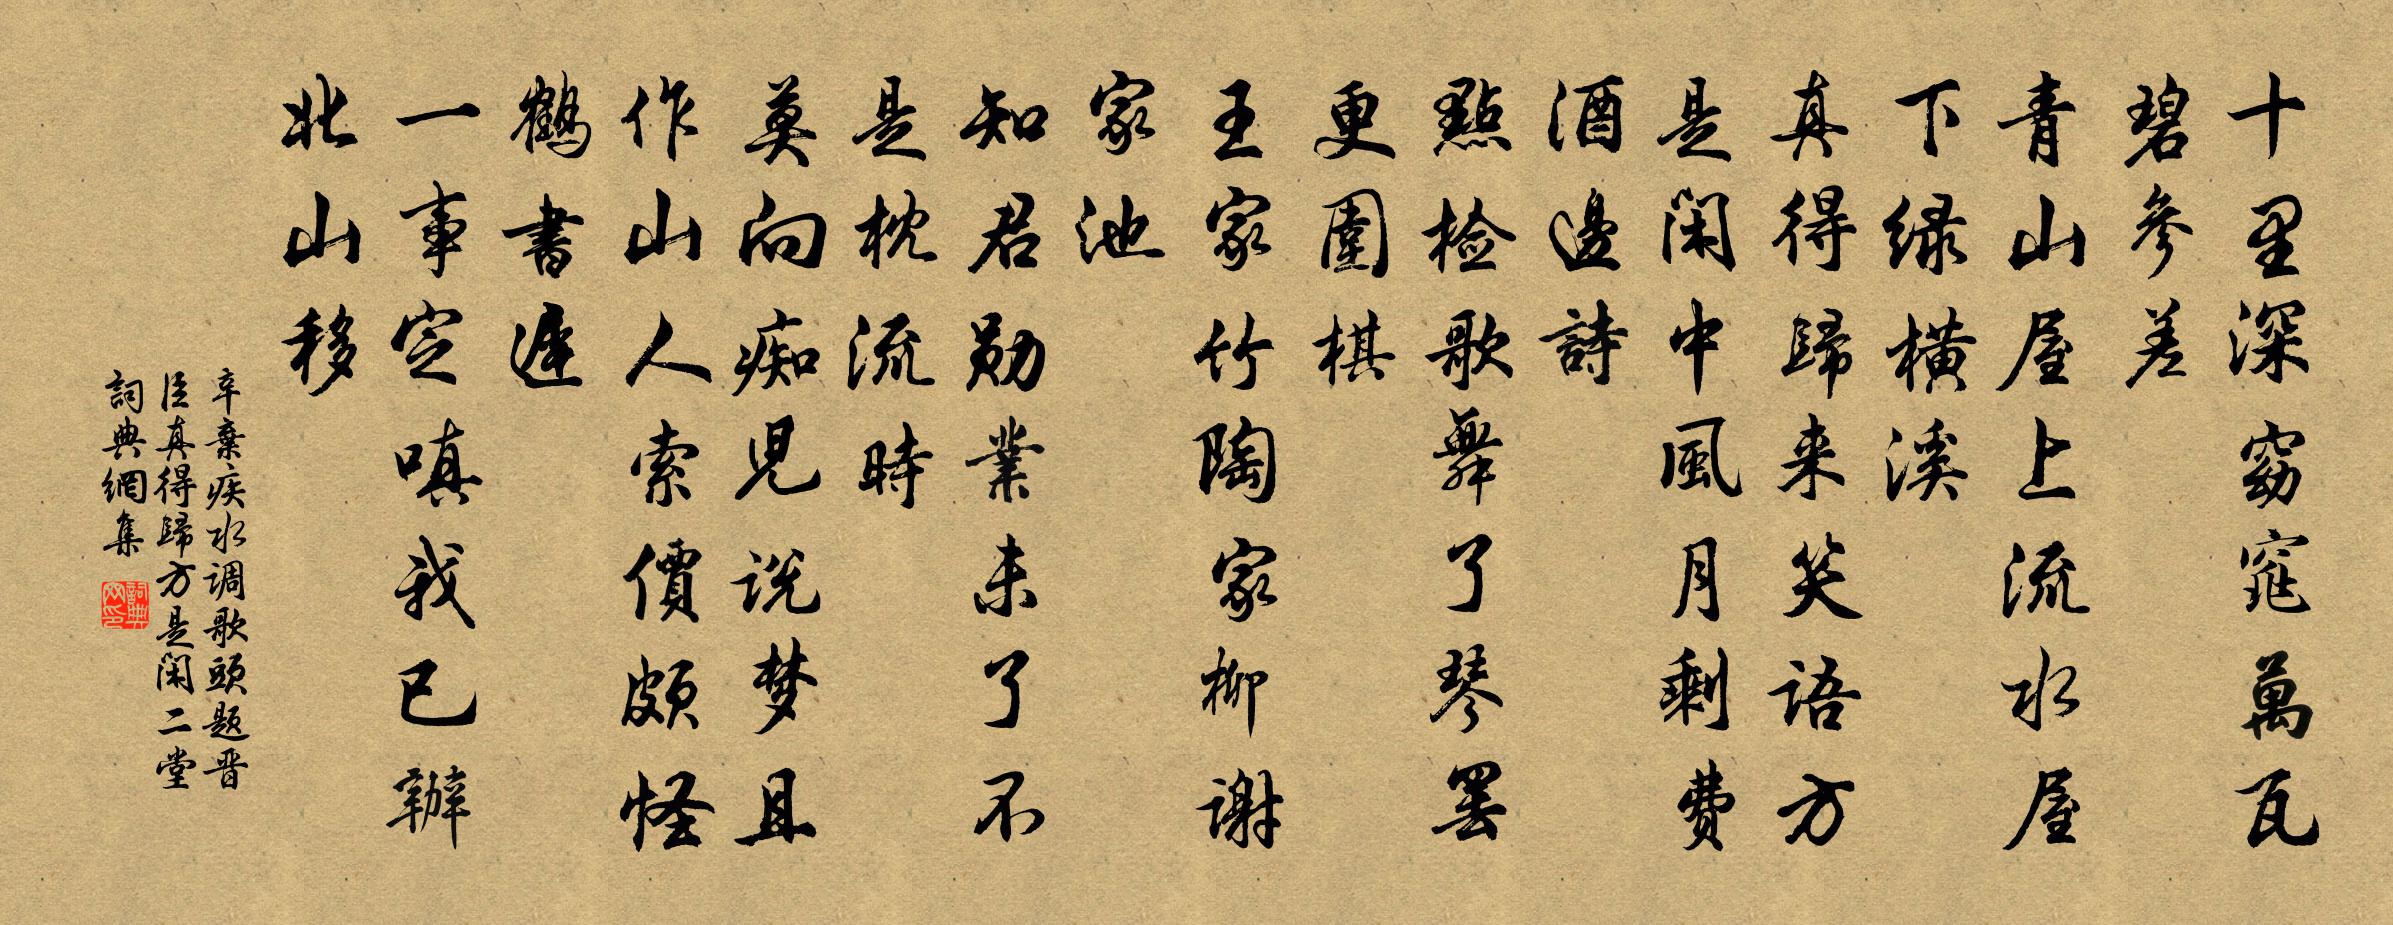 十里深窈窕萬瓦
碧參差
青山屋上流水屋
下绿橫溪
真得歸来笑语方
是闲中風月剩費
酒邊詩
點检歌舞了琴罢
更圍棋
王家竹陶家柳谢
家池
知君勋業未了不
是枕流時
莫向痴児说梦且
作山人索價頗怪
鶴書遲
一事定嗔我已辦
北山移
辛棄疾水调歌頭题晋
臣真得歸方是闲二堂
詞典網集
詞典
网印